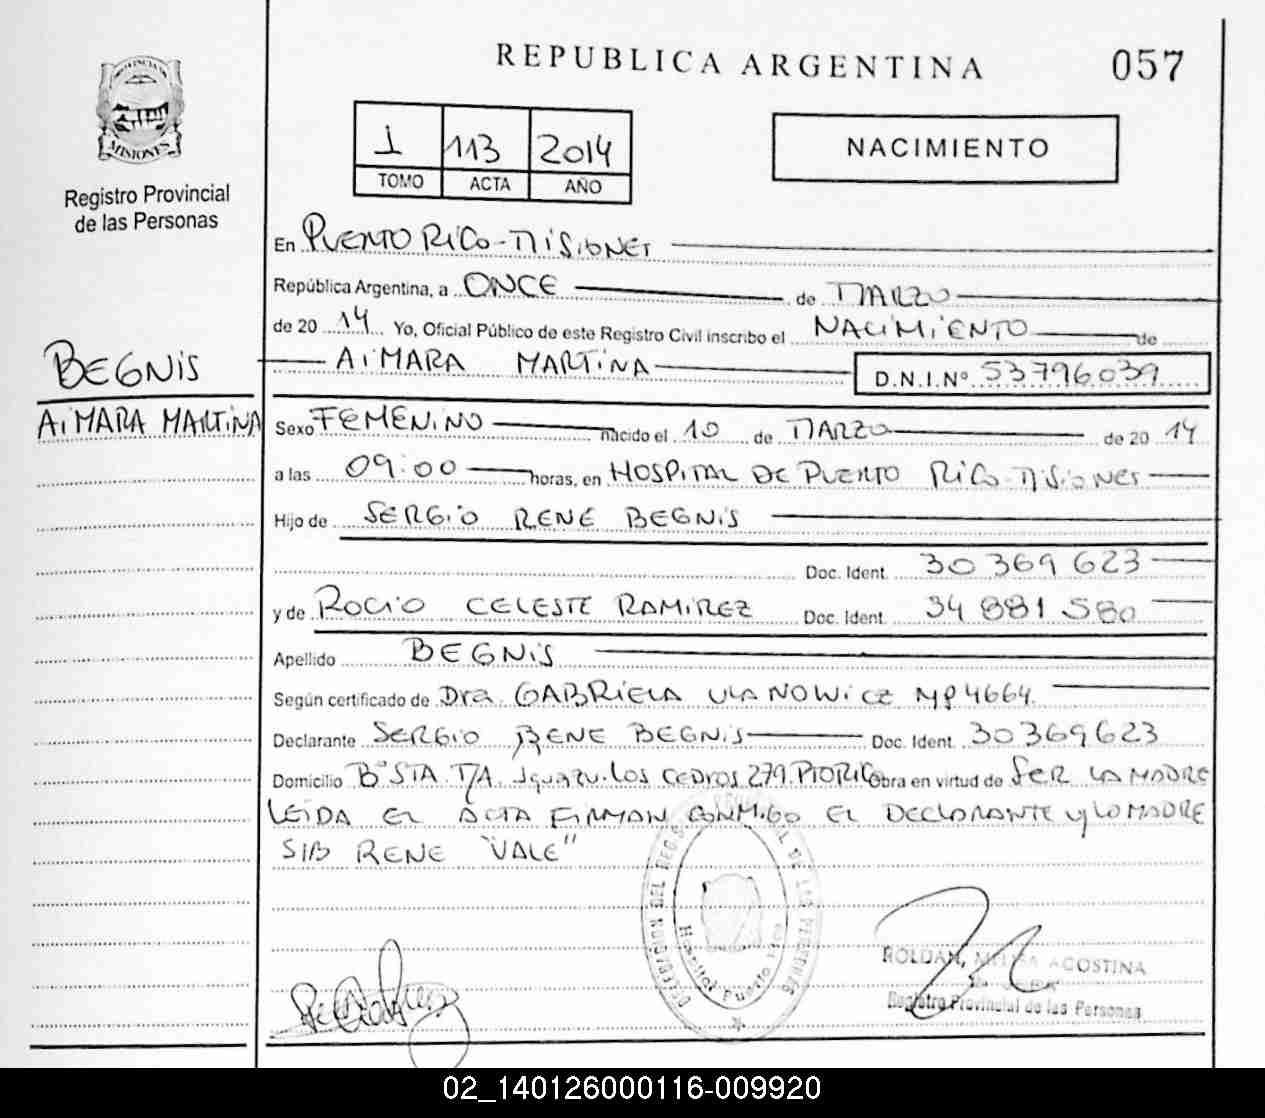 REPUBLICA ARGENTINA
057
PROVINCIA DE
MISIONES
Registro Provincial
de las Personas
1 113 2014
TOMO ACTA AÑO
NACIMIENTO
En PUERTO RICO - MISIONES
República Argentina, a ONCE de MARZO
de 20 14 Yo, Oficial Público de este Registro Civil inscribo el NACIMIENTO de
AIMARA MARTINA D.N.I.Nº 53796039
BEGNIS
AIMARA MARTINA
Sexo FEMENINO nacido el 10 de MARZO de 20 14
a las 09:00 horas, en HOSPITAL DE PUERTO RICO - MISIONES
Hijo de SERGIO RENE BEGNIS
Doc. Ident. 30 369 623
y de ROCIO CELESTE RAMIREZ Doc. Ident. 34 881 580
Apellido BEGNIS
Según certificado de Dra. GABRIELA ULANOWICZ MP 4664.
Declarante SERGIO RENE BEGNIS Doc. Ident. 30369623
Domicilio Bº STA. Iguazu. Los CEDROS 279. PTO RICO Obra en virtud de SER LA MADRE
LEIDA EL ACTA FIRMAN CONMIGO EL DECLARANTE y LA MADRE
S/B RENE "VALE"
DELEGACION DEL REG. DE LAS PERSONAS
Hospital Puerto Rico
ROLDAN, AGOSTINA
Registro Provincial de las Personas
02_140126000116-009920